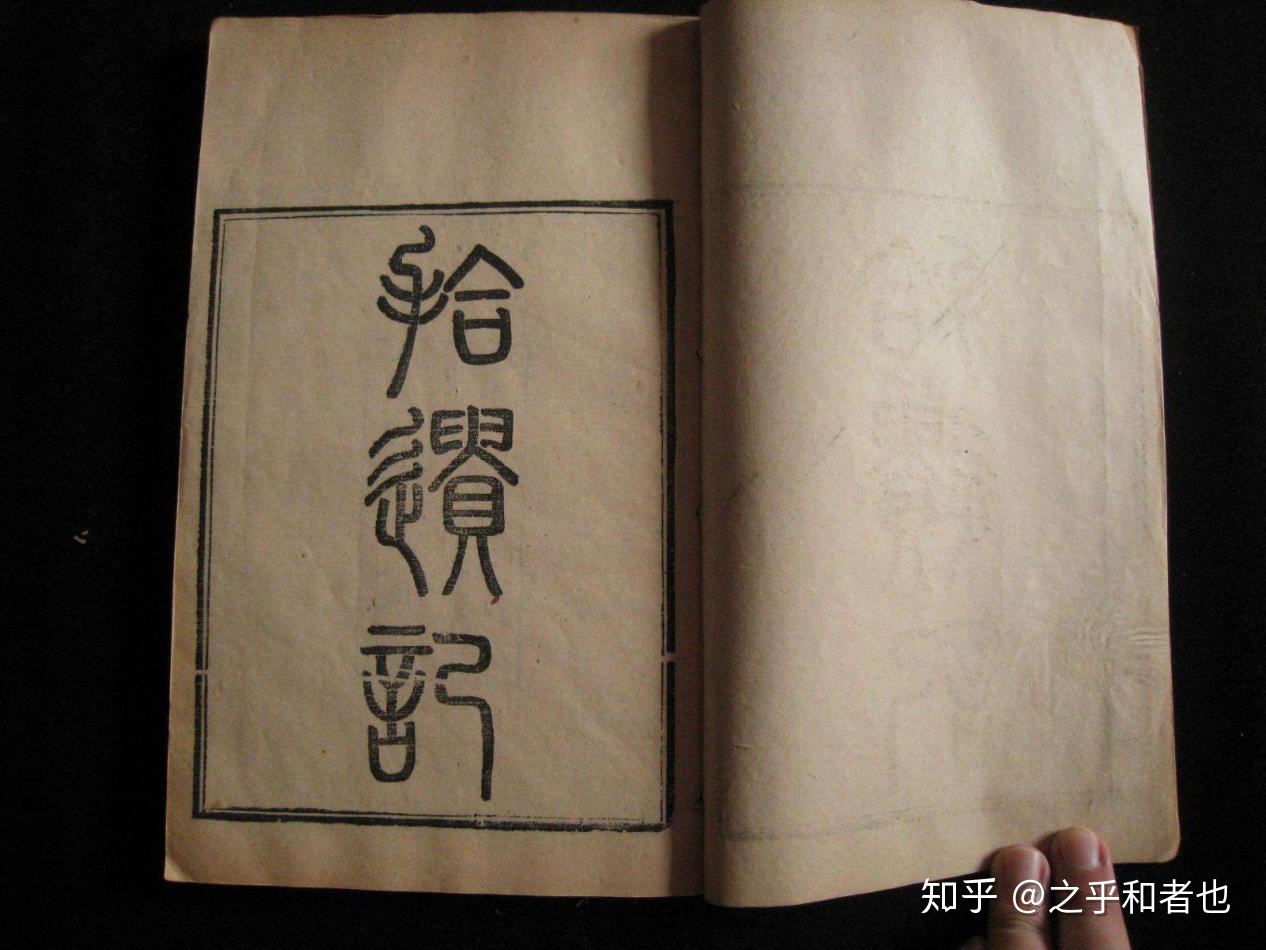 拾遺記
知乎 @之乎和者也